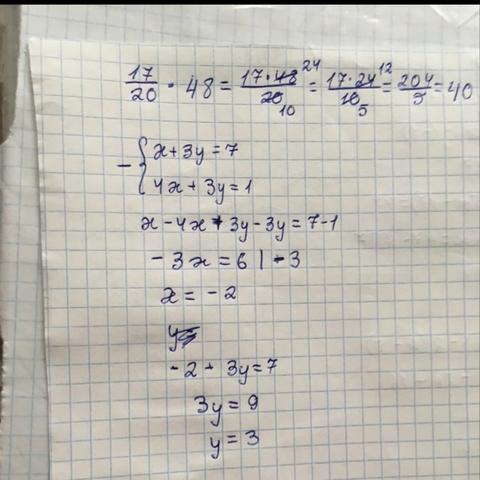 17/20 · 48 = 17·48/20 24 10 = 17·24/10 12 5 = 204/5 = 40
- { x + 3y = 7
4x + 3y = 1
x - 4x + 3y - 3y = 7 - 1
- 3x = 6 | - 3
x = - 2
- 2 + 3y = 7
3y = 9
y = 3